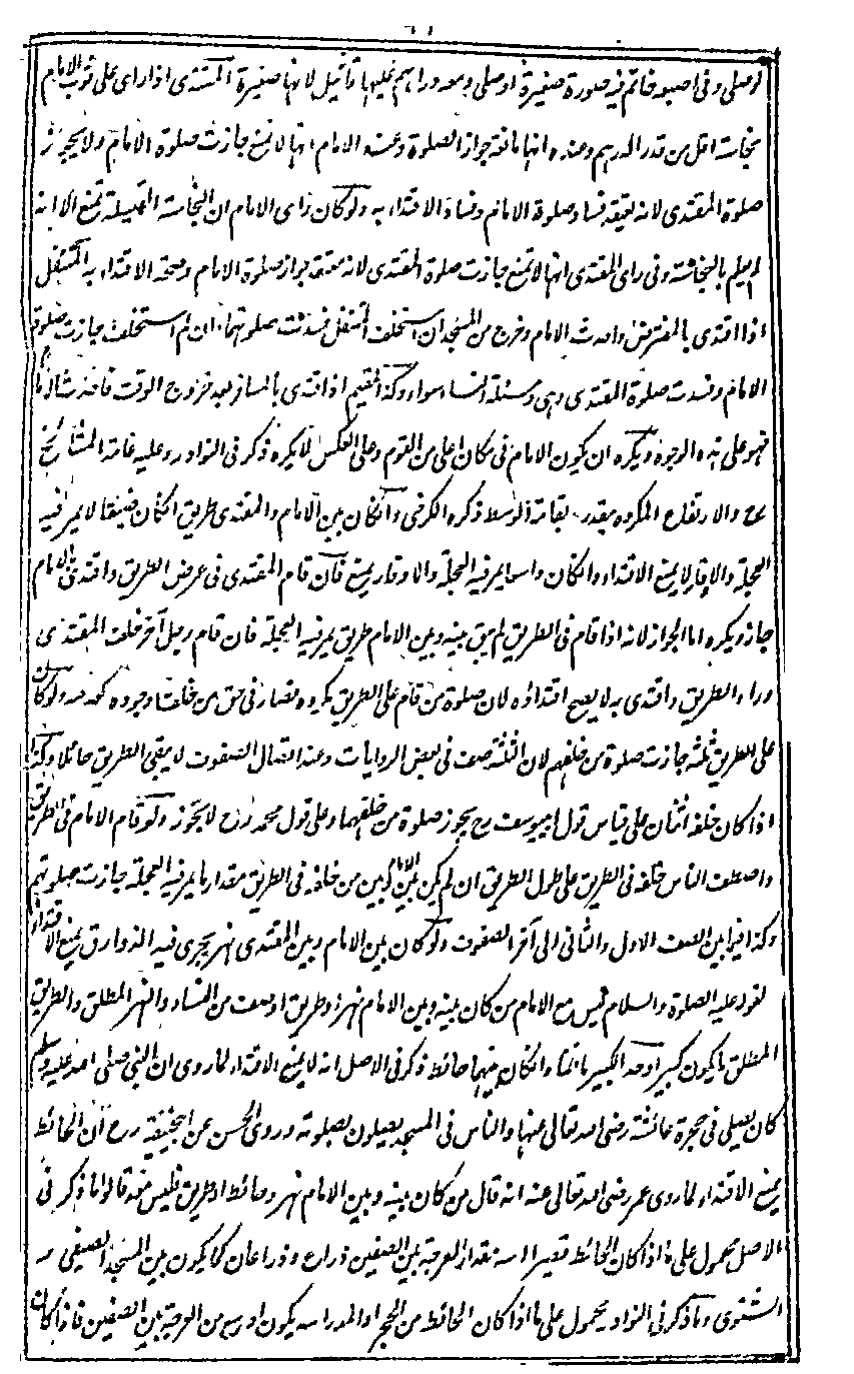 او صلى وفى اصبعه خاتم فيه صورة صغيرة او صلى ومعه دراهم عليها تماثيل لانها صغيرة المقتدى اذا راى على ثوب الامام
نجاسة اقل من قدر الدرهم وعنده انها مانعة جواز الصلوة وعند الامام انها لا تمنع جازت صلوة الامام ولا يجوز
صلوة المقتدى لانه يعتقد فساد صلوة الامام وفساد الاقتداء به ولو كان راى الامام ان النجاسة القليلة تمنع الا انه
لم يعلم بالنجاسة وفى راى المقتدى انها لا تمنع جازت صلوة المقتدى لانه يعتقد جواز صلوة الامام وصحة الاقتداء به المتنفل
اذا اقتدى بالمفترض واحدث الامام وخرج من المسجد ان استخلف المتنفل فسدت صلوتهما وان لم استخلف جازت صلوة
الامام وفسدت صلوة المقتدى وهى ومسئلة النساء سواء وكذا المقيم اذا اقتدى بالمسافر بعد خروج الوقت فاحدث
فهو على هذه الوجوه ويكره ان يكون الامام فى مكان اعلى من القوم وعلى العكس لا يكره ذكر فى النوادر وعليه عامة المشايخ
رح والارتفاع المكروه مقدر بقامة الوسط ذكره الكرخى وان كان بين الامام والمقتدى طريق ان كان ضيقا لا يمر فيه
العجلة والاوقار لا يمنع الاقتداء وان كان واسعا يمر فيه العجلة والاوقار يمنع فان قام المقتدى فى عرض الطريق واقتدى بالامام
جاز ويكره اما الجواز لانه اذا قام فى الطريق لم يبق بينه وبين الامام طريق يمر فيه العجلة فان قام رجل آخر خلف المقتدى
وراء الطريق واقتدى به لا يصح اقتداؤه لان صلوة من قام على الطريق مكروه فصار فى حق من خلفه وجوده كعدمه ولو كان
على الطريق ثلثة جازت صلوة من خلفهم لان الثلثة صف فى بعض الروايات وعند اتصال الصفوف لا يبقى الطريق حائلا وكذا
اذا كان خلفه اثنان على قياس قول ابى يوسف رح يجوز صلوة من خلفهما وعلى قول محمد رح لا يجوز ولو قام الامام فى الطريق
واصطف الناس خلفه فى الطريق على طول الطريق ان لم يكن بين الامام وبين من خلفه فى الطريق مقدار ما يمر فيه العجلة جازت صلوتهم
وكذا فيما بين الصف الاول والثانى الى آخر الصفوف ولو كان بين الامام وبين المقتدى نهر يجرى فيه الزوارق يمنع الاقتداء
لقوله عليه الصلوة والسلام ليس مع الامام من كان بينه وبين الامام نهر او طريق او صف من النساء والنهر المطلق والطريق
المطلق ما يكون كبيرا وحد الكبير ما قلنا وان كان بينهما حائط ذكر فى الاصل انه لا يمنع الاقتداء لما روى ان النبى صلى الله عليه وسلم
كان يصلى فى حجرة عائشة رضى الله تعالى عنها والناس فى المسجد يصلون بصلوته وروى الحسن عن ابى حنيفة رح ان الحائط
يمنع الاقتداء لما روى عمر رضى الله تعالى عنه انه قال من كان بينه وبين الامام نهر وحائط او طريق فليس معه قالوا ما ذكر فى
الاصل محمول على ما اذا كان الحائط قصيرا مقدار الفرجة بين الصفين ذراع وذراعان كما يكون بين المسجد الصيفى
الشتوى وما ذكر فى النوادر محمول على ما اذا كان الحائط من الحجر او المدر يكون اوسع من الفرجة بين الصفين فاذا كان